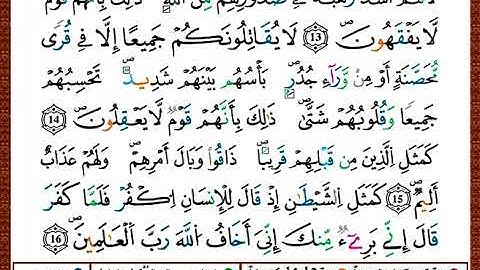 لَا يَفْقَهُونَ ۝13 لَا يُقَاتِلُونَكُمْ جَمِيعًا إِلَّا فِي قُرًى
مُحَصَّنَةٍ أَوْ مِنْ وَرَاءِ جُدُرٍ بَأْسُهُمْ بَيْنَهُمْ شَدِيدٌ تَحْسَبُهُمْ
جَمِيعًا وَقُلُوبُهُمْ شَتَّى ذَلِكَ بِأَنَّهُمْ قَوْمٌ لَا يَعْقِلُونَ ۝14
كَمَثَلِ الَّذِينَ مِنْ قَبْلِهِمْ قَرِيبًا ذَاقُوا وَبَالَ أَمْرِهِمْ وَلَهُمْ عَذَابٌ
أَلِيمٌ ۝15 كَمَثَلِ الشَّيْطَانِ إِذْ قَالَ لِلْإِنْسَانِ اكْفُرْ فَلَمَّا كَفَرَ
قَالَ إِنِّي بَرِيءٌ مِنْكَ إِنِّي أَخَافُ اللَّهَ رَبَّ الْعَالَمِينَ ۝16